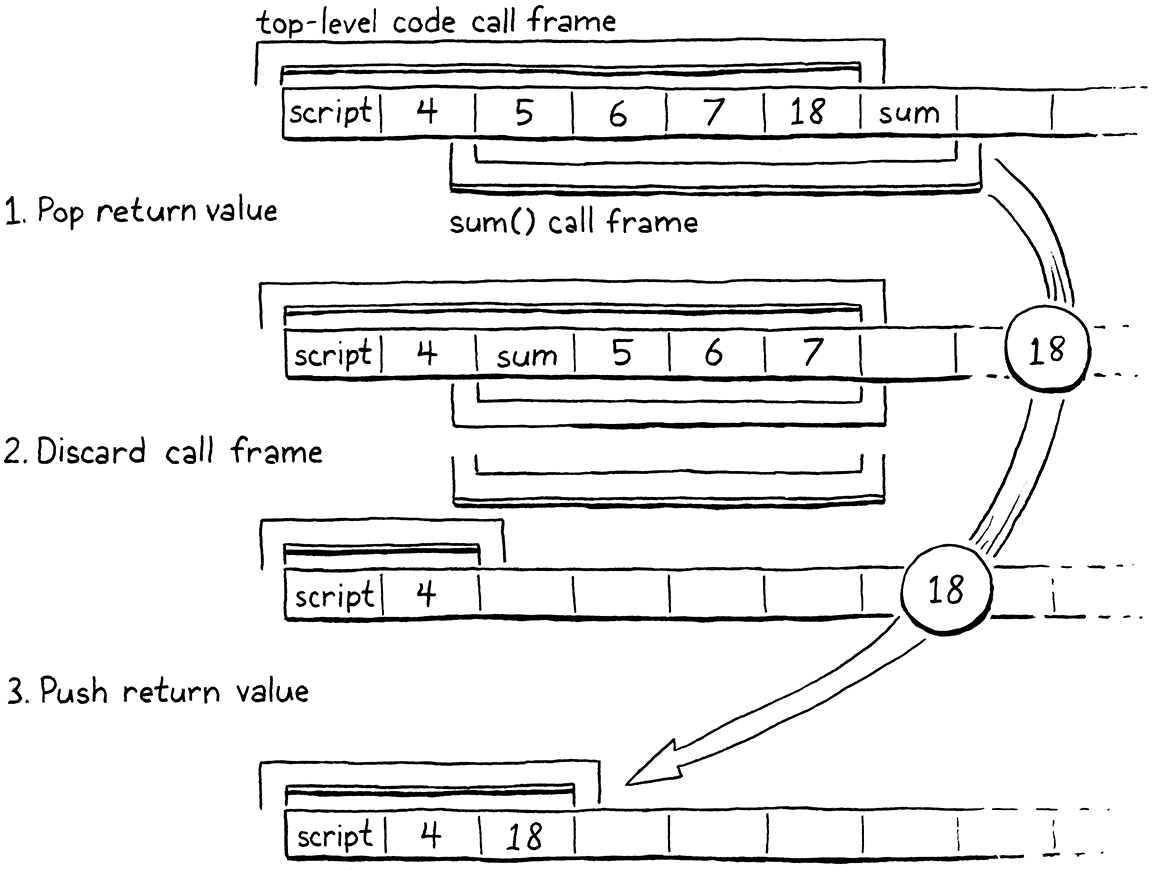 top-level code call frame
script 4 5 6 7 18 sum
1. Pop return value
sum() call frame
script 4 sum 5 6 7
18
2. Discard call frame
script 4
18
3. Push return value
script 4 18